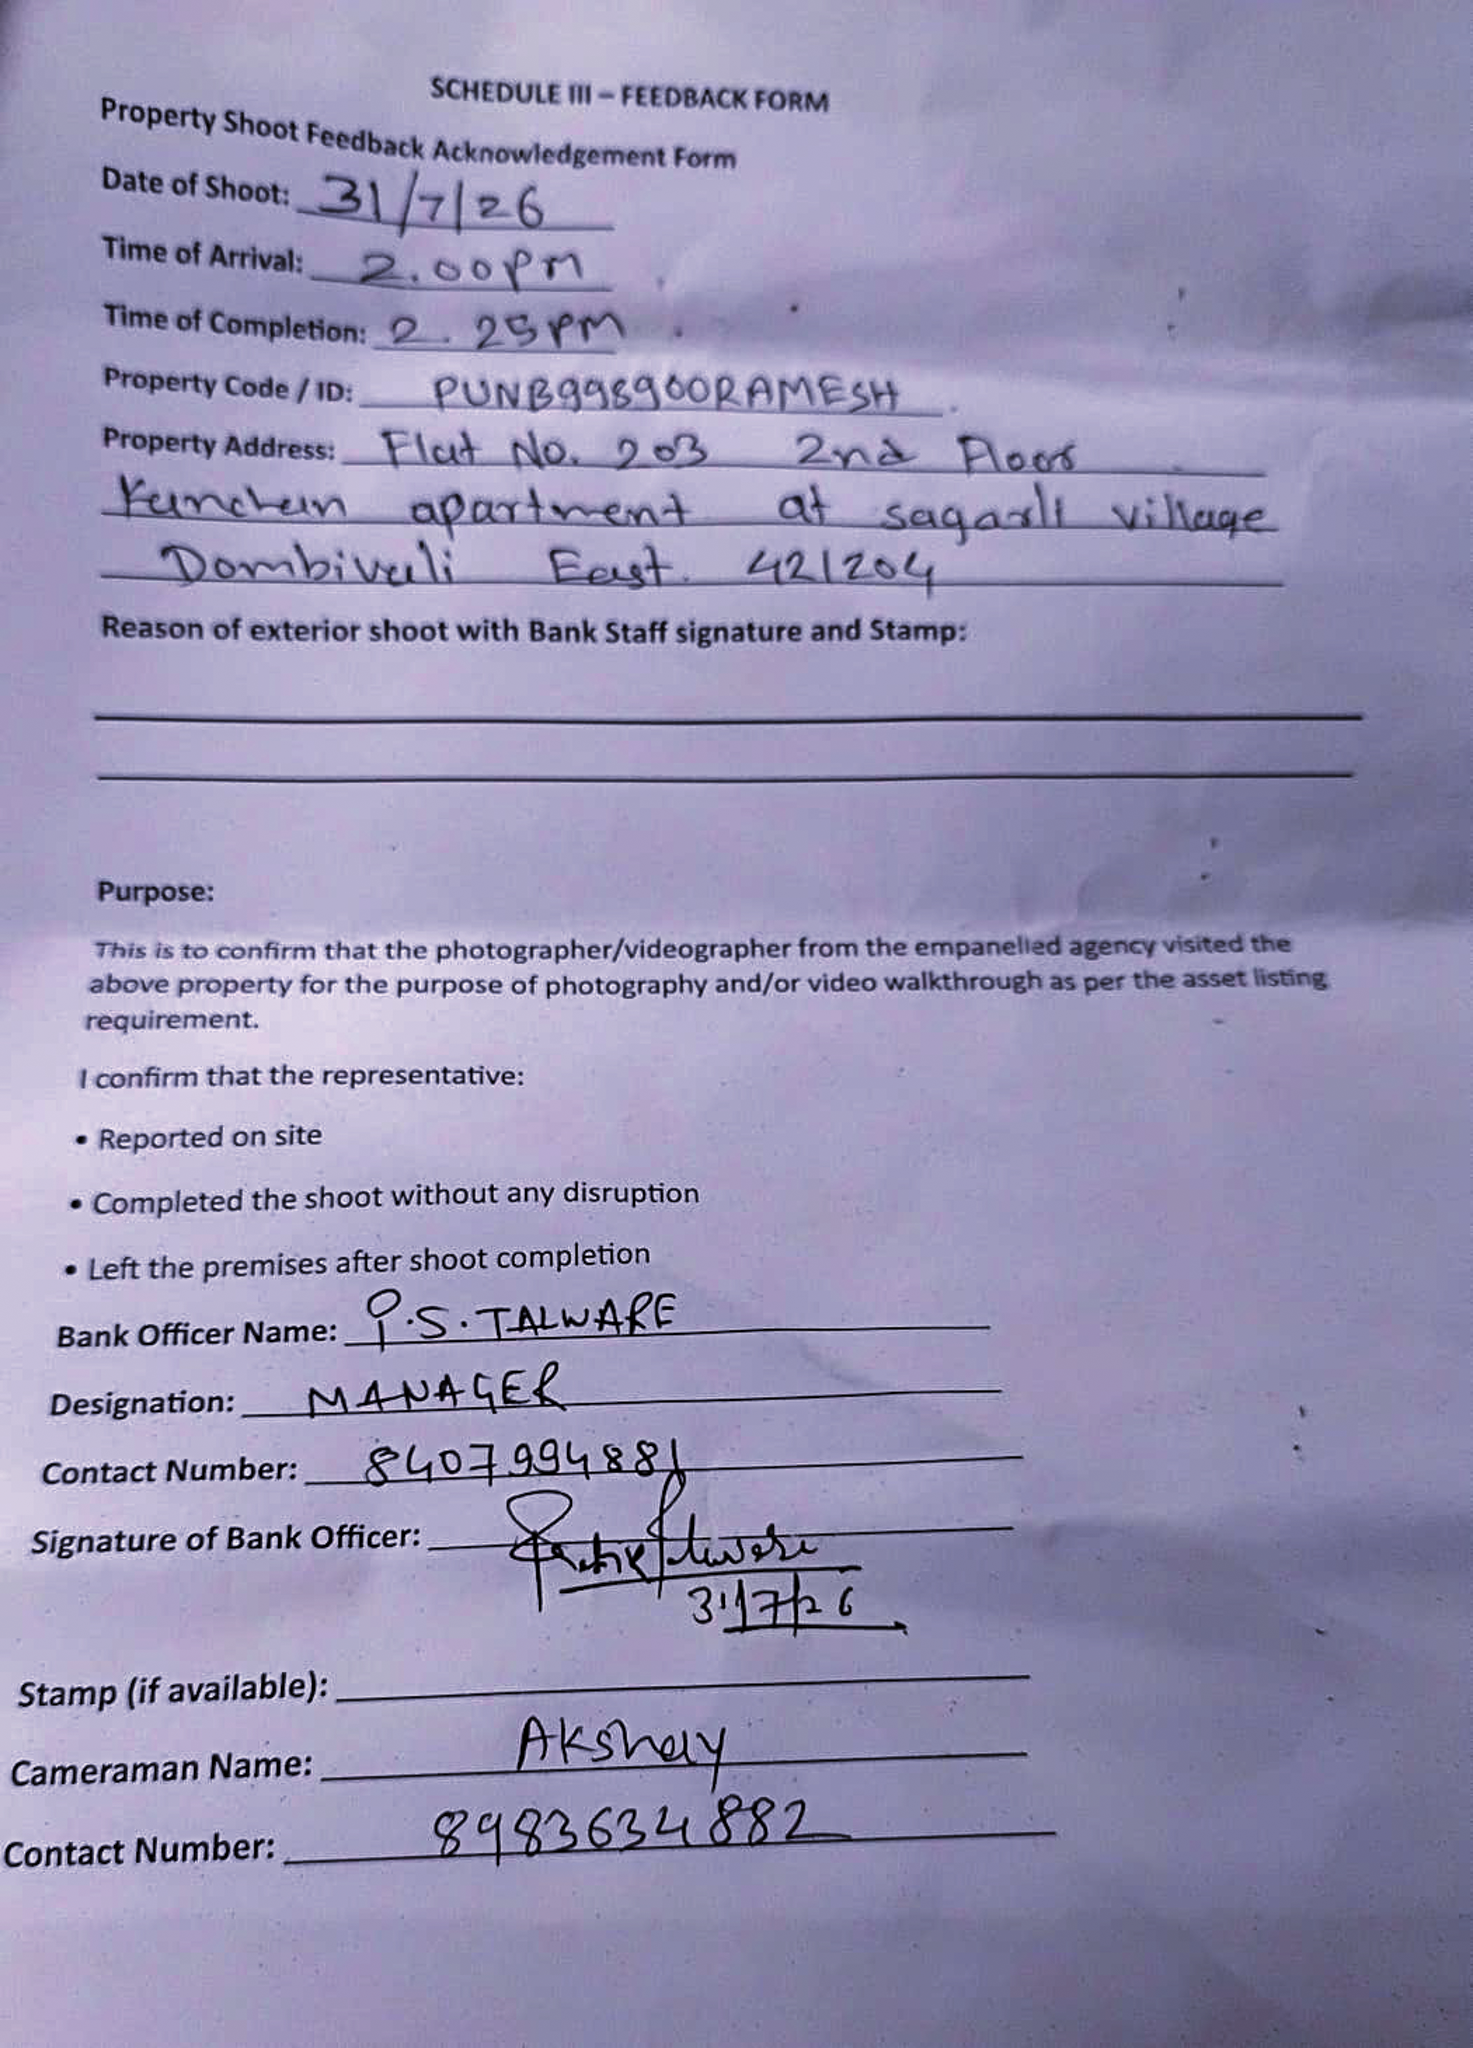 SCHEDULE III – FEEDBACK FORM
Property Shoot Feedback Acknowledgement Form
Date of Shoot: 31/7/26
Time of Arrival: 2.00pm
Time of Completion: 2.25PM.
Property Code / ID: PUNB998900RAMESH.
Property Address: Flat No. 203 2nd Floor
Kanchan apartment at sagarli village
Dombivali East. 421204
Reason of exterior shoot with Bank Staff signature and Stamp:
Purpose:
This is to confirm that the photographer/videographer from the empanelled agency visited the
above property for the purpose of photography and/or video walkthrough as per the asset listing
requirement.
I confirm that the representative:
• Reported on site
• Completed the shoot without any disruption
• Left the premises after shoot completion
Bank Officer Name: P.S. TALWARE
Designation: MANAGER
Contact Number: 8407994881
Signature of Bank Officer:
31/7/26
Stamp (if available):
Cameraman Name: Akshay
Contact Number: 8983634882